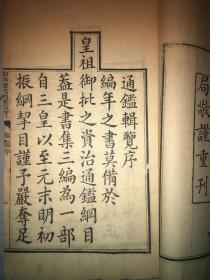 通鑑輯覽序
編年之書莫備於
皇祖御批之資治通鑑綱目
蓋是書集三編為一部
自三皇以至元末明初
振綱挈目謹予嚴奪足
局敬謹重刊